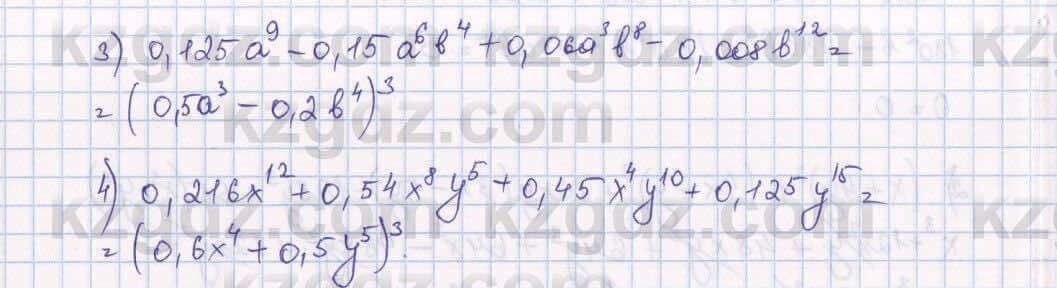 3) 0,125a⁹ - 0,15a⁶b⁴ + 0,06a³b⁸ - 0,008b¹² =
= (0,5a³ - 0,2b⁴)³
4) 0,216x¹² + 0,54x⁸y⁵ + 0,45x⁴y¹⁰ + 0,125y¹⁵ =
= (0,6x⁴ + 0,5y⁵)³.
kzgdz.com